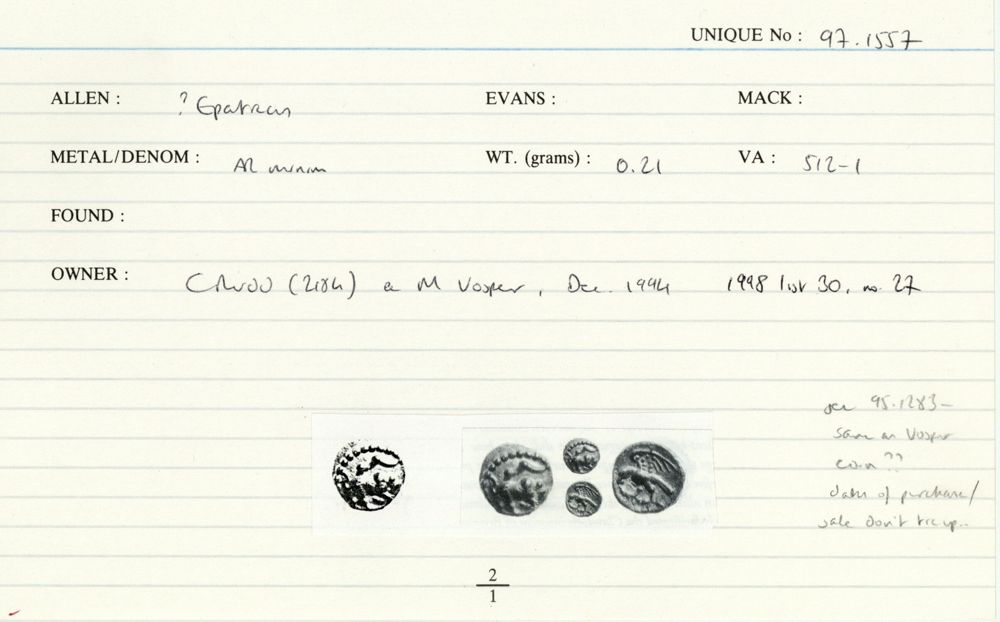 UNIQUE No : 97.1557
ALLEN : ? Epaticcus EVANS : MACK :
METAL/DENOM : AR minim WT. (grams) : 0.21 VA : 512-1
FOUND :
OWNER : (2184) M Vosper, Dec. 1994 1998 list 30, no. 27
see 95.1283 -
same as Vosper
coin ??
dates of purchase/
sale don't tie up..
2
1